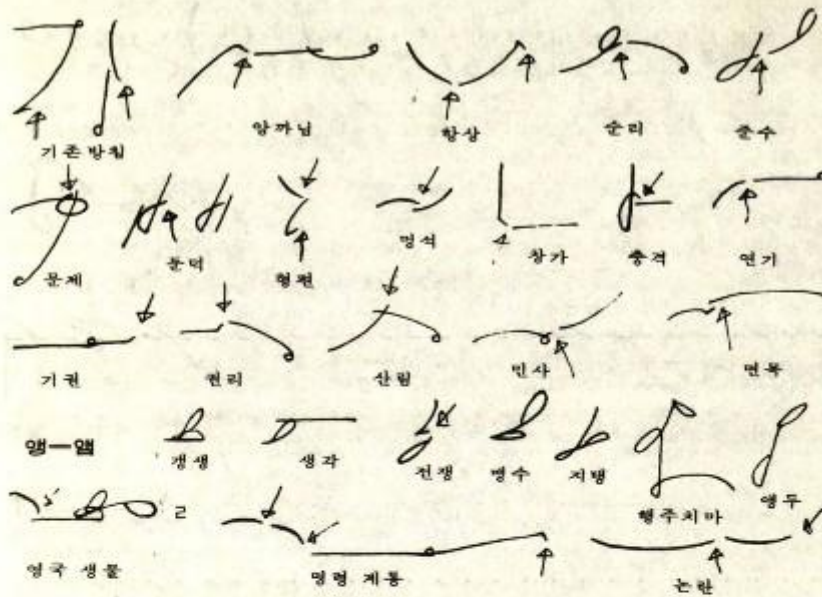 기존 방침 앙까님 항상 순리 준수
문제 문덕 형편 명석 창가 충격 연기
기권 권리 산림 민사 면목
앵一앰
갱생 생각 전쟁 맹수 지탱 행주치마 앵두
영국 생물 2 명령 계통 논란